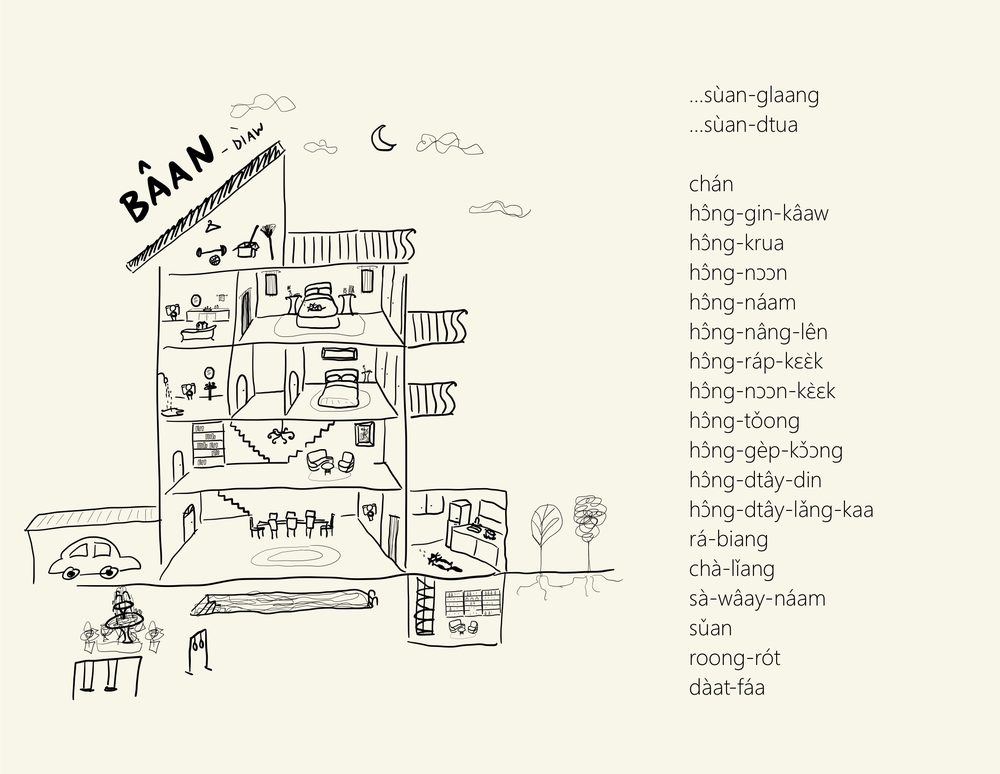 BÂAN - DÌAW
...sùan-glaang
...sùan-dtua
chán
hɔ̂ng-gin-kâaw
hɔ̂ng-krua
hɔ̂ng-nɔɔn
hɔ̂ng-náam
hɔ̂ng-nâng-lên
hɔ̂ng-ráp-kɛɛ̀k
hɔ̂ng-nɔɔn-kɛ̀ɛk
hɔ̂ng-tǒong
hɔ̂ng-gèp-kɔ̌ɔng
hɔ̂ng-dtây-din
hɔ̂ng-dtây-lǎng-kaa
rá-biang
chà-lǐang
sà-wâay-náam
sǔan
roong-rót
dàat-fáa